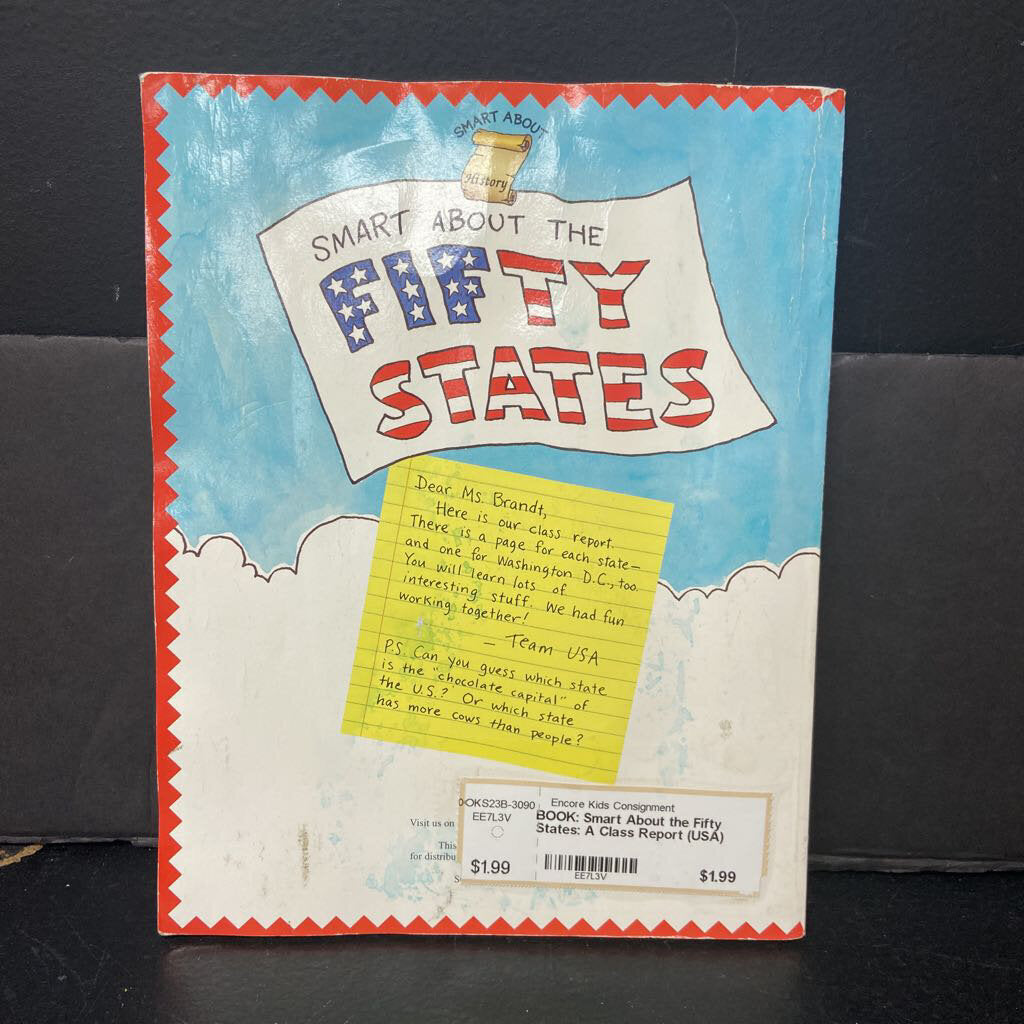 SMART ABOUT
History
SMART ABOUT THE
FIFTY
STATES
Dear Ms. Brandt,
Here is our class report.
There is a page for each state—
and one for Washington D.C., too.
You will learn lots of
interesting stuff. We had fun
working together!
— Team USA
P.S. Can you guess which state
is the "chocolate capital" of
the U.S.? Or which state
has more cows than people?
Visit us on
This
for distribu
S
OOKS23B-3090
EE7L3V
$1.99
Encore Kids Consignment
BOOK: Smart About the Fifty
States: A Class Report (USA)
EE7L3V
$1.99